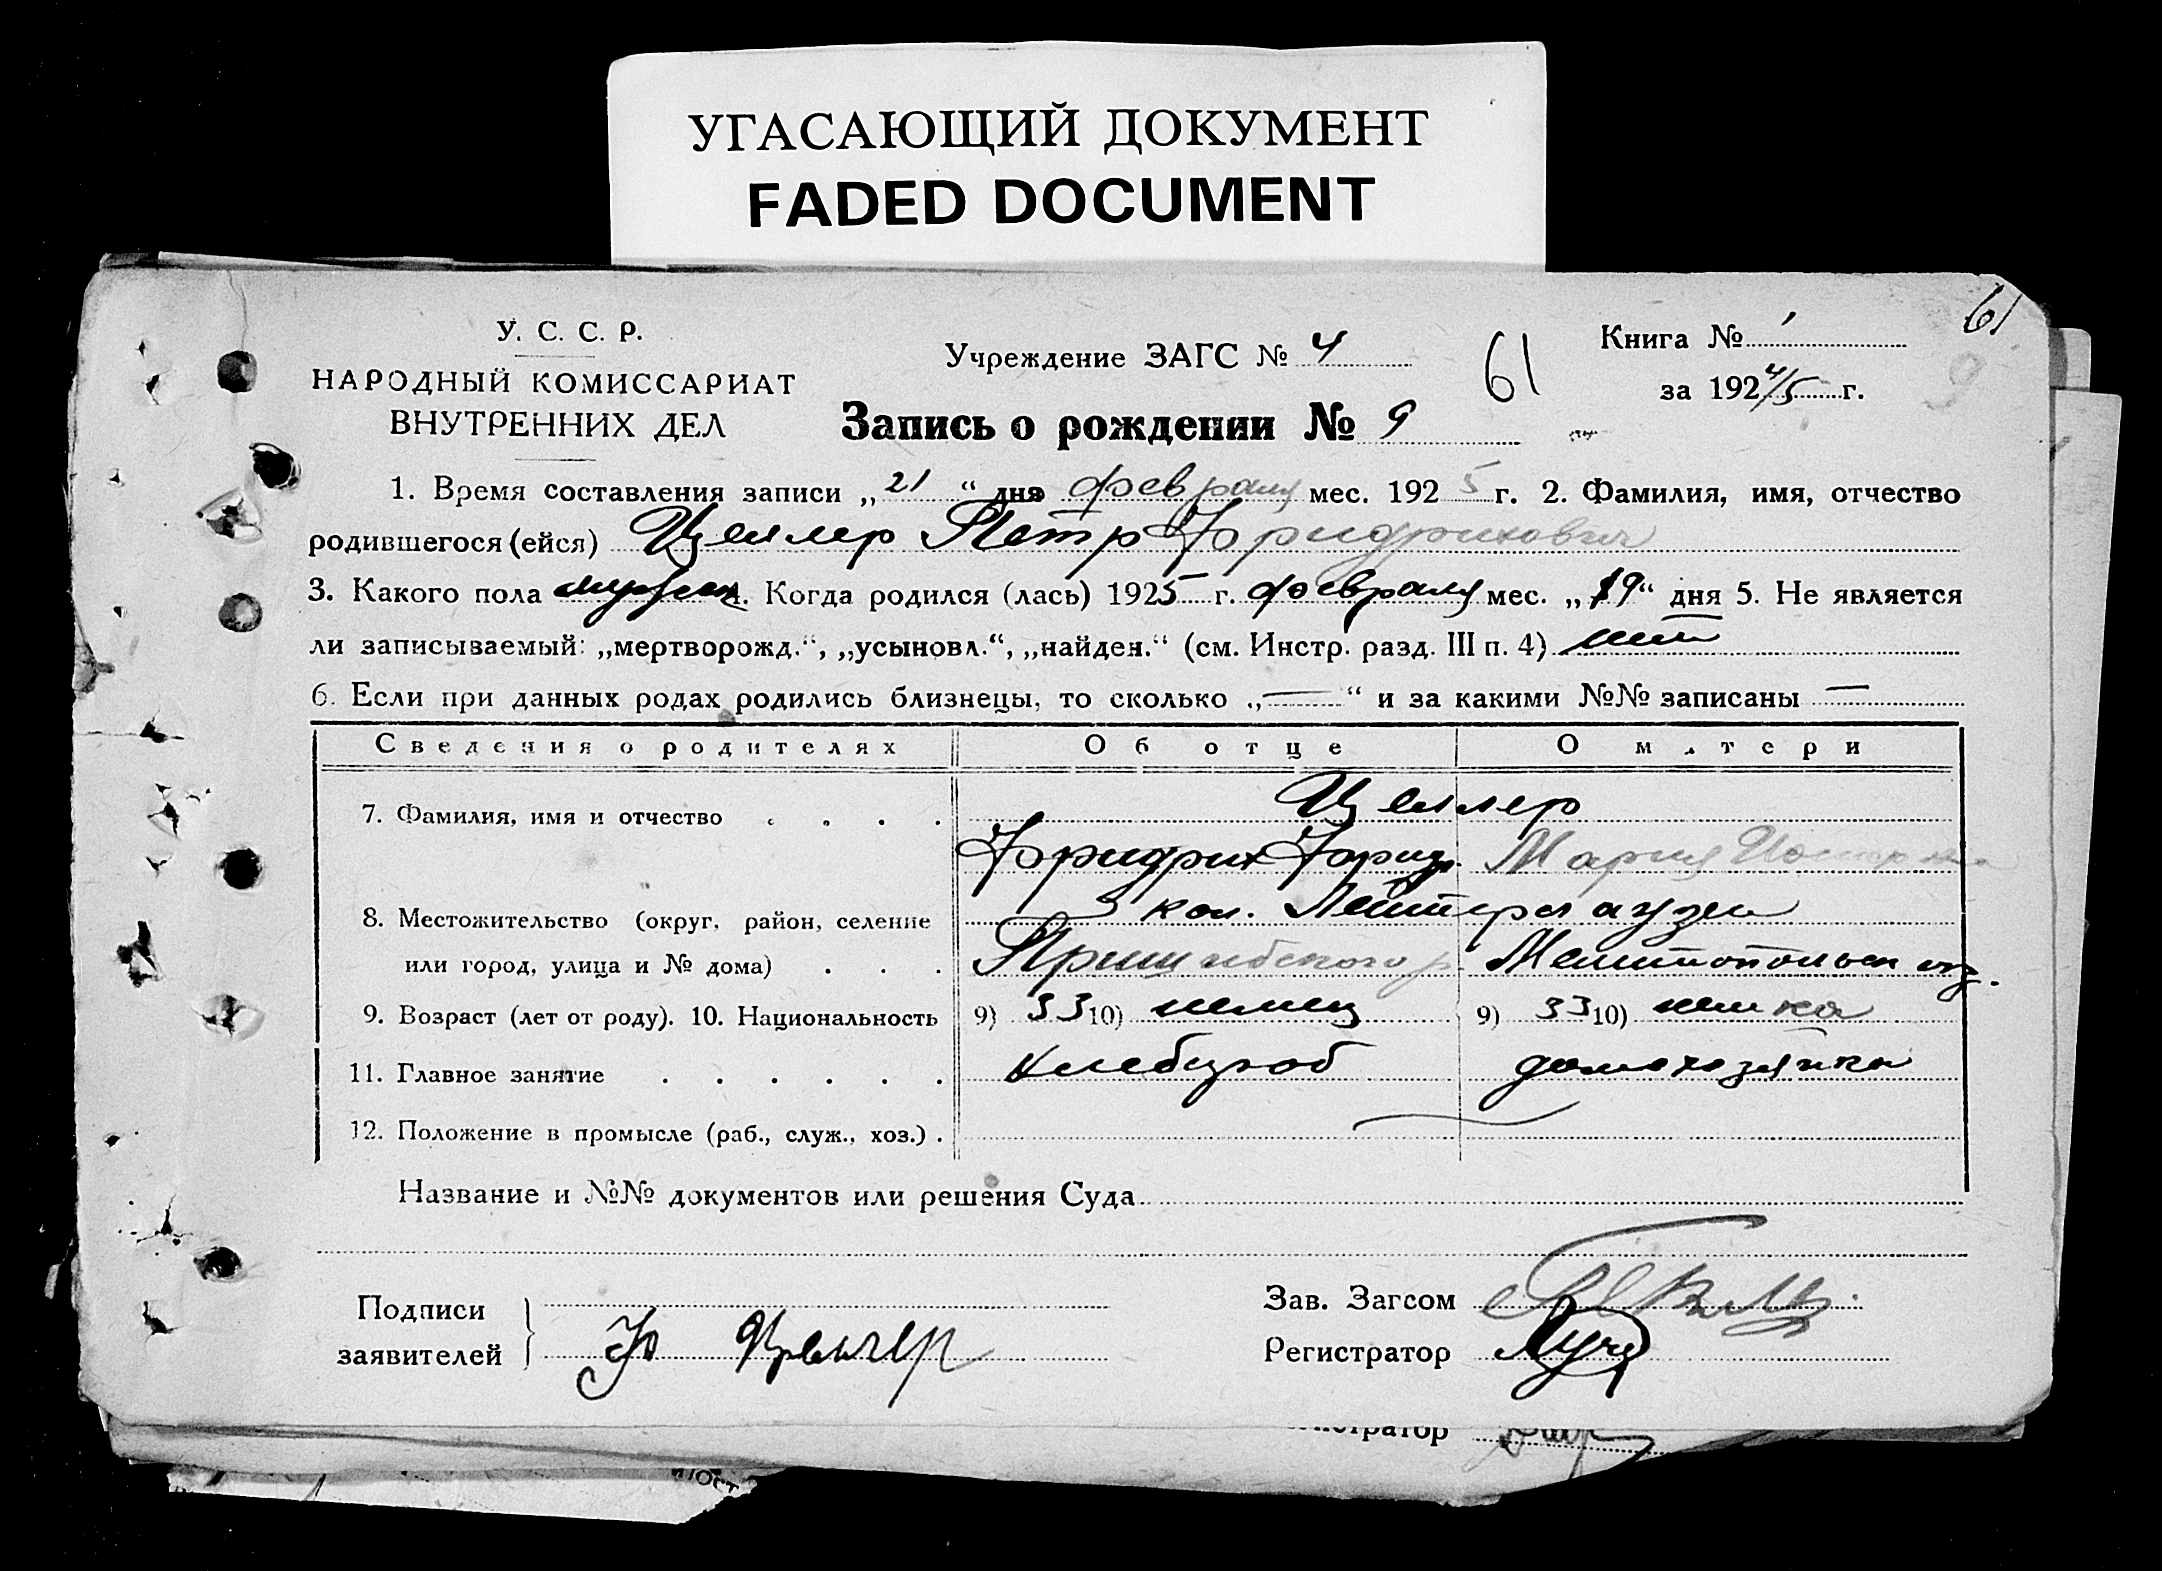 УГАСАЮЩИЙ ДОКУМЕНТ
FADED DOCUMENT
61
У. С. С. Р.
НАРОДНЫЙ КОМИССАРИАТ
ВНУТРЕННИХ ДЕЛ
Учреждение ЗАГС № 4
61
Книга № 1
за 1924/5 г.
9
Запись о рождении № 9
1. Время составления записи „21“ дня февраля мес. 1925 г. 2. Фамилия, имя, отчество
родившегося (ейся) Целлер Петр Фридрихович
3. Какого пола мужск 4. Когда родился (лась) 1925 г. февраля мес. „19“ дня 5. Не является
ли записываемый: „мертворожд.“, „усыновл.“, „найден.“ (см. Инстр. разд. III п. 4) нет
6. Если при данных родах родились близнецы, то сколько „—“ и за какими №№ записаны —
Сведения о родителях Об отце О матери
7. Фамилия, имя и отчество . . . . Целлер
Фридрих Фридр. Мария
8. Местожительство (округ, район, селение кол.
или город, улица и № дома) . . . Пришибского р. Мелитопольск
9. Возраст (лет от роду). 10. Национальность 9) 33 10) немец 9) 33 10) немка
11. Главное занятие . . . . . . хлебороб домохозяйка
12. Положение в промысле (раб., служ., хоз.) .
Название и №№ документов или решения Суда
Подписи
заявителей Ф Целлер
Зав. Загсом
Регистратор